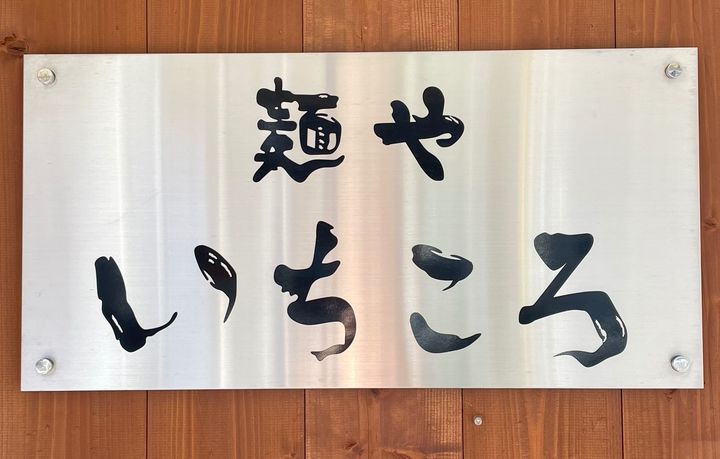 麺や
いちころ